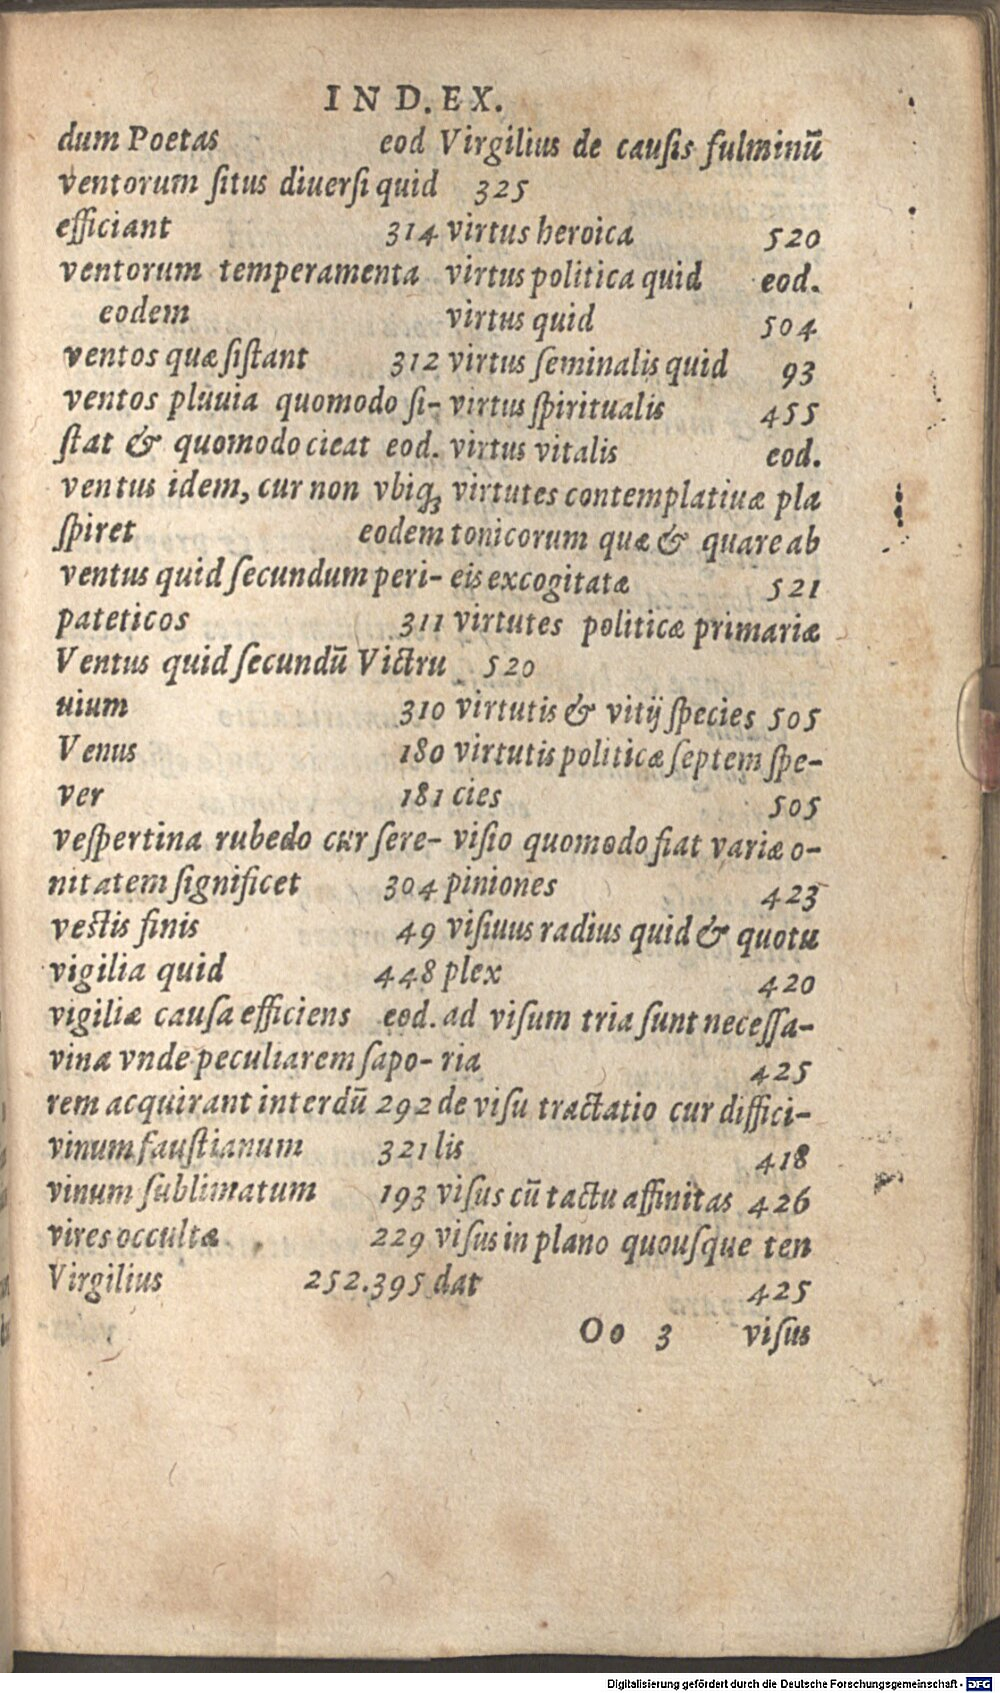 IND.EX.
dum Poetas eod
ventorum ſitus diuerſi quid
efficiant 314
ventorum temperamenta
eodem
ventos quæ ſiſtant 312
ventos pluuia quomodo ſi-
ſtat & quomodo cieat eod.
ventus idem, cur non vbiq;
ſpiret eodem
ventus quid ſecundum peri-
pateticos 311
Ventus quid ſecundū Victru
uium 310
Venus 180
ver 181
veſpertina rubedo cur ſere-
nitatem ſignificet 304
veſtis finis 49
vigilia quid 448
vigiliæ cauſa efficiens eod.
vinæ vnde peculiarem ſapo-
rem acquirant interdū 292
vinum fauſtianum 321
vinum ſublimatum 193
vires occultæ 229
Virgilius 252.395
Virgilius de cauſis fulminū
325
virtus heroica 520
virtus politica quid eod.
virtus quid 504
virtus ſeminalis quid 93
virtus ſpiritualis 455
virtus vitalis eod.
virtutes contemplatiuæ pla
tonicorum quæ & quare ab
eis excogitatæ 521
virtutes politicæ primariæ
520
virtutis & vitij ſpecies 505
virtutis politicæ ſeptem ſpe-
cies 505
viſio quomodo fiat variæ o-
piniones 423
viſiuus radius quid & quotu
plex 420
ad viſum tria ſunt neceſſa-
ria 425
de viſu tractatio cur diffici-
lis 418
viſus cū tactu affinitas 426
viſus in plano quouſque ten
dat 425
Oo 3 viſus
Digitalisierung gefördert durch die Deutsche Forschungsgemeinschaft - DFG